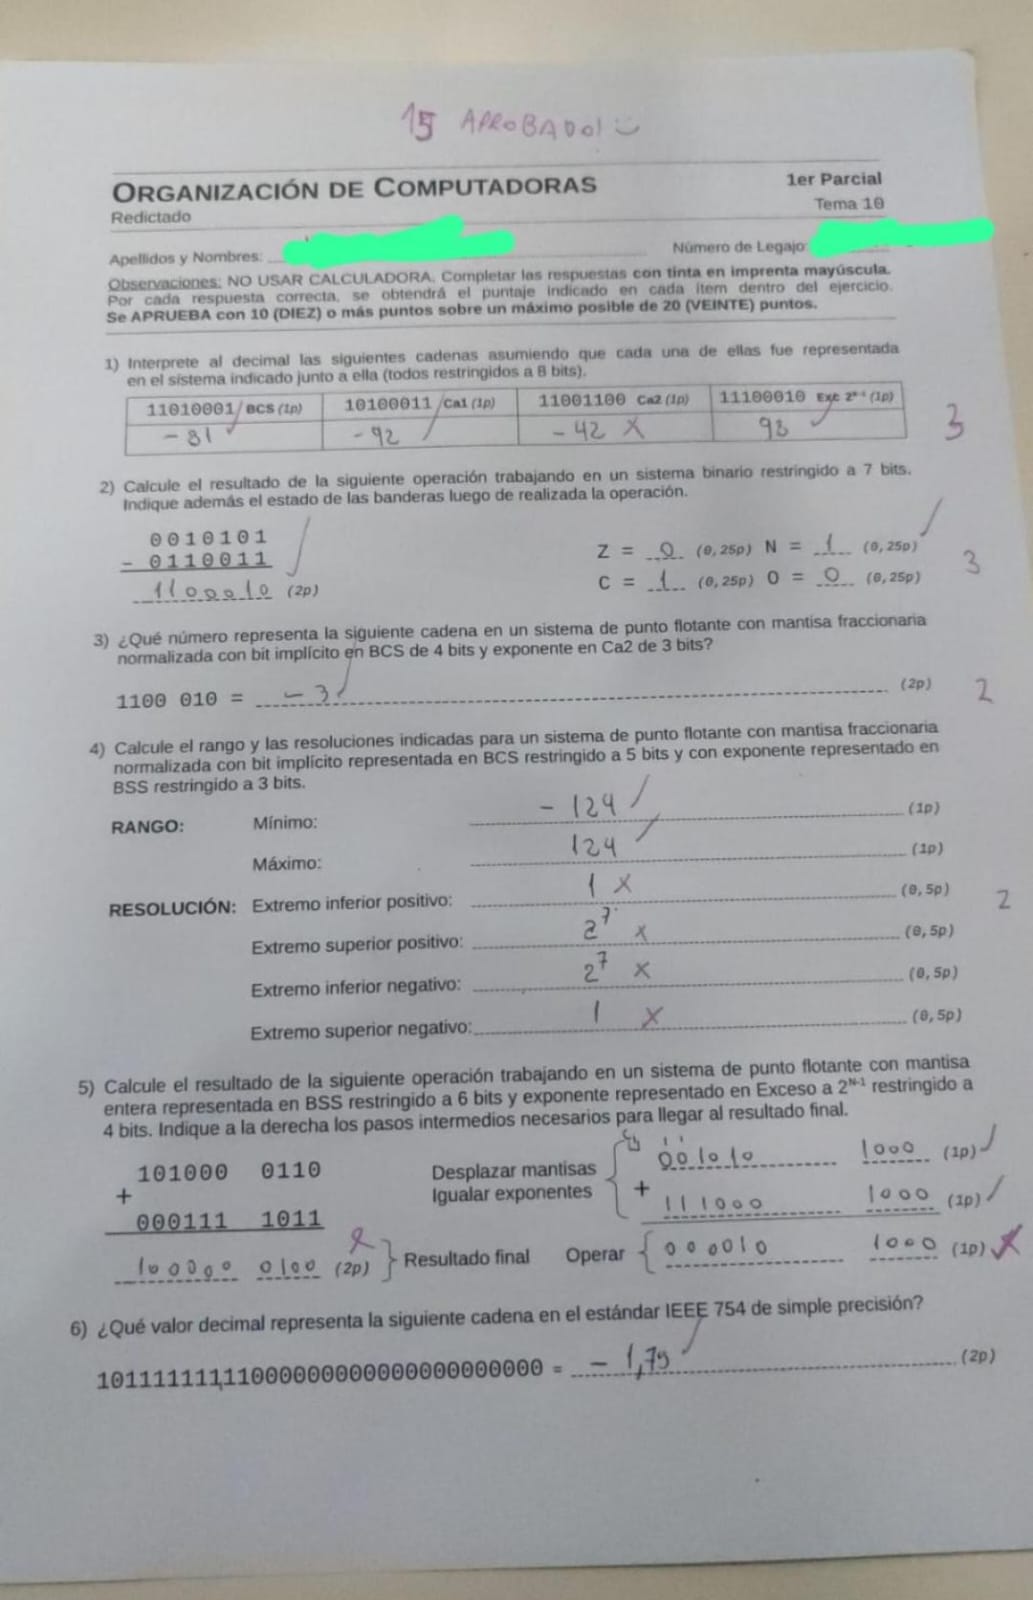 15 APROBADO! :)
ORGANIZACIÓN DE COMPUTADORAS
1er Parcial
Redictado
Tema 10
Apellidos y Nombres:
Número de Legajo:
Observaciones: NO USAR CALCULADORA. Completar las respuestas con tinta en imprenta mayúscula.
Por cada respuesta correcta, se obtendrá el puntaje indicado en cada ítem dentro del ejercicio.
Se APRUEBA con 10 (DIEZ) o más puntos sobre un máximo posible de 20 (VEINTE) puntos.
1) Interprete al decimal las siguientes cadenas asumiendo que cada una de ellas fue representada
en el sistema indicado junto a ella (todos restringidos a 8 bits).
11010001 BCS (1p) 10100011 Ca1 (1p) 11001100 Ca2 (1p) 11100010 Exc 2ⁿ⁻¹ (1p)
-81 -92 -42 X 98 3
2) Calcule el resultado de la siguiente operación trabajando en un sistema binario restringido a 7 bits.
Indique además el estado de las banderas luego de realizada la operación.
0010101
- 0110011
1100010 (2p)
Z = 0 (0,25p) N = 1 (0,25p)
C = 1 (0,25p) O = 0 (0,25p) 3
3) ¿Qué número representa la siguiente cadena en un sistema de punto flotante con mantisa fraccionaria
normalizada con bit implícito en BCS de 4 bits y exponente en Ca2 de 3 bits?
1100 010 = -3 (2p) 2
4) Calcule el rango y las resoluciones indicadas para un sistema de punto flotante con mantisa fraccionaria
normalizada con bit implícito representada en BCS restringido a 5 bits y con exponente representado en
BSS restringido a 3 bits.
RANGO: Mínimo: - 124 (1p)
Máximo: 124 (1p)
RESOLUCIÓN: Extremo inferior positivo: 1 X (0,5p) 2
Extremo superior positivo: 2⁷ X (0,5p)
Extremo inferior negativo: 2⁷ X (0,5p)
Extremo superior negativo: 1 X (0,5p)
5) Calcule el resultado de la siguiente operación trabajando en un sistema de punto flotante con mantisa
entera representada en BSS restringido a 6 bits y exponente representado en Exceso a 2ᴺ⁻¹ restringido a
4 bits. Indique a la derecha los pasos intermedios necesarios para llegar al resultado final.
101000 0110
+
000111 1011
100000 0100 (2p) Resultado final
Desplazar mantisas
Igualar exponentes
001010 1000 (1p)
+ 111000 1000 (1p)
Operar 000010 1000 (1p) X
6) ¿Qué valor decimal representa la siguiente cadena en el estándar IEEE 754 de simple precisión?
= - 1,75 (2p)